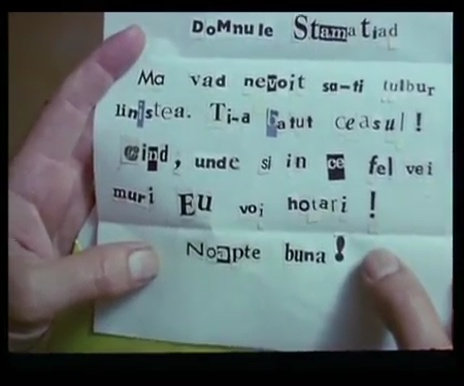 DoMnule Stamatiad
Ma vad nevoit sa-ti tulbur
linistea. Ti-a batut ceasul!
cind, unde si in ce fel vei
muri Eu voi hotari!
Noapte buna!